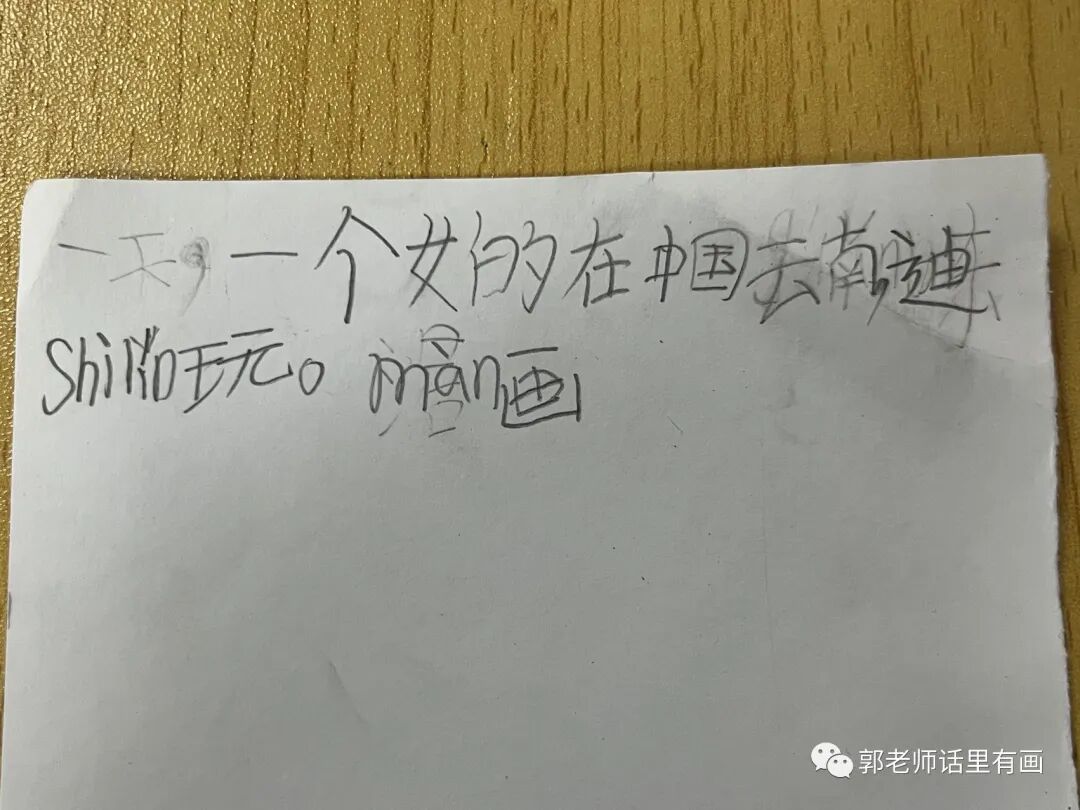 一天，一个女的在中国云南迪
Shilin玩。mān画
郭老师话里有画